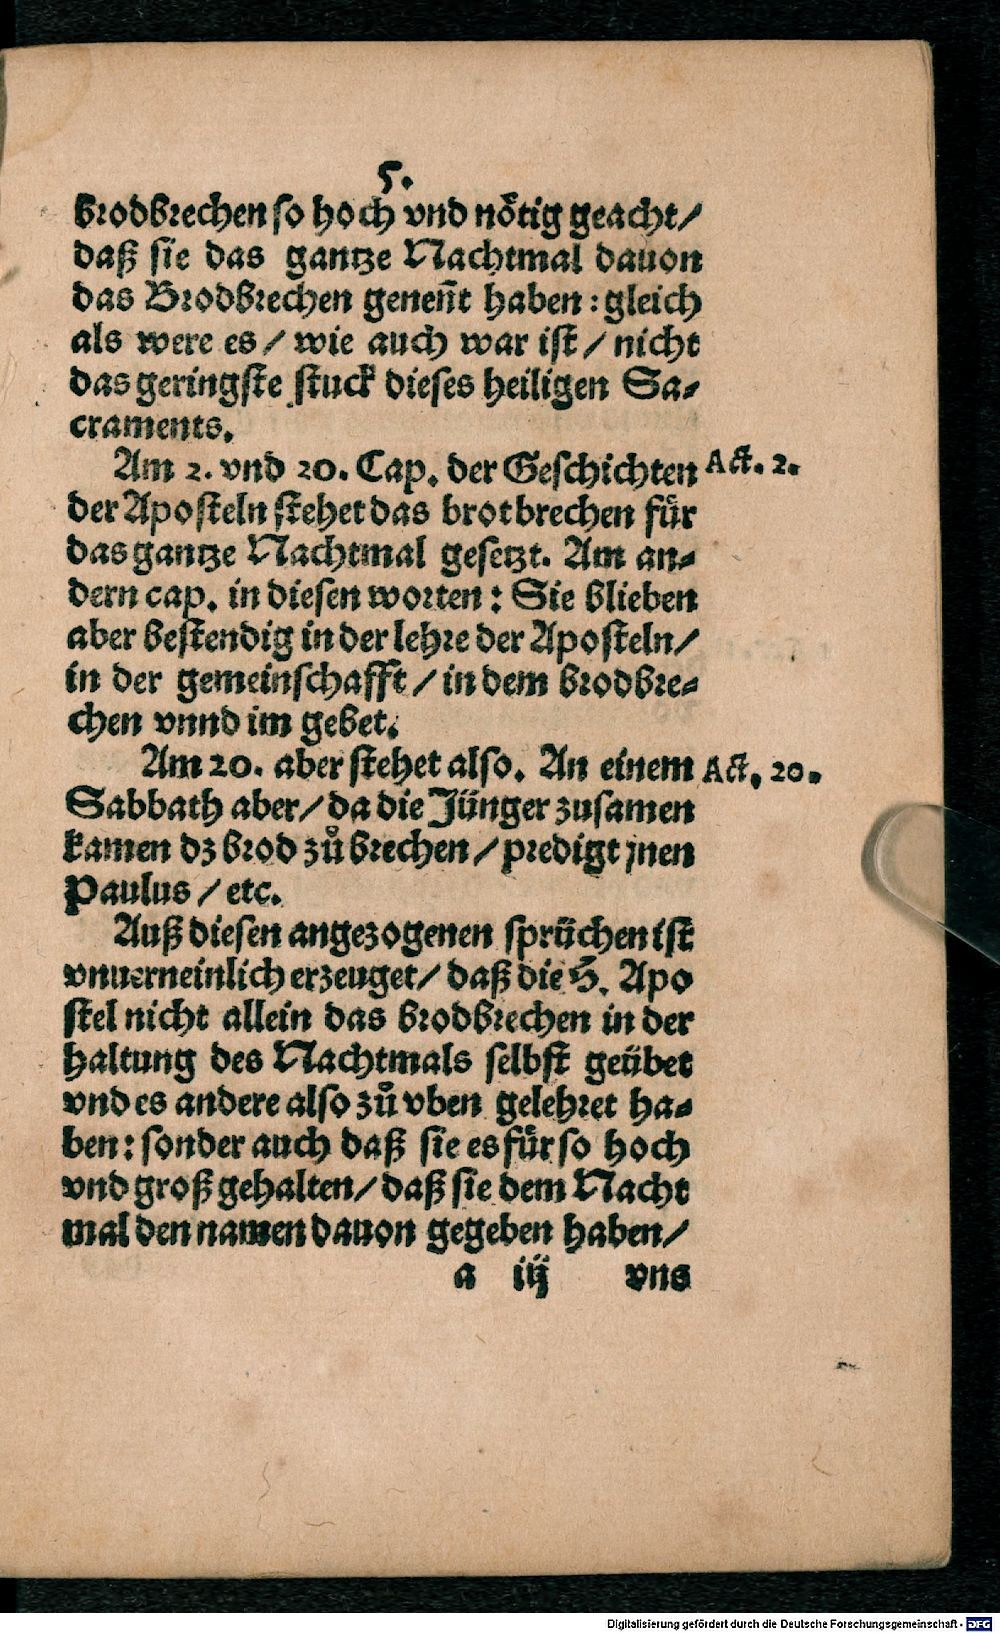 5.
brodbrechen so hoch vnd nötig geacht/
daß sie das gantze Nachtmal dauon
das Brodbrechen geneñt haben: gleich
als were es/ wie auch war ist/ nicht
das geringste stuck dieses heiligen Sa-
craments.
Am 2. vnd 20. Cap. der Geschichten
Act. 2.
der Aposteln stehet das brotbrechen für
das gantze Nachtmal gesetzt. Am an-
dern cap. in diesen worten: Sie blieben
aber bestendig in der lehre der Aposteln/
in der gemeinschafft/ in dem brodbre-
chen vnnd im gebet.
Am 20. aber stehet also. An einem
Act. 20.
Sabbath aber/ da die Jünger zusamen
kamen dz brod zů brechen/ predigt jnen
Paulus/ etc.
Auß diesen angezogenen sprüchen ist
vnuerneinlich erzeuget/ daß die H. Apo
stel nicht allein das brodbrechen in der
haltung des Nachtmals selbst geübet
vnd es andere also zů vben gelehret ha-
ben: sonder auch daß sie es für so hoch
vnd groß gehalten/ daß sie dem Nacht
mal den namen dauon gegeben haben/
a iij vns
Digitalisierung gefördert durch die Deutsche Forschungsgemeinschaft - DFG